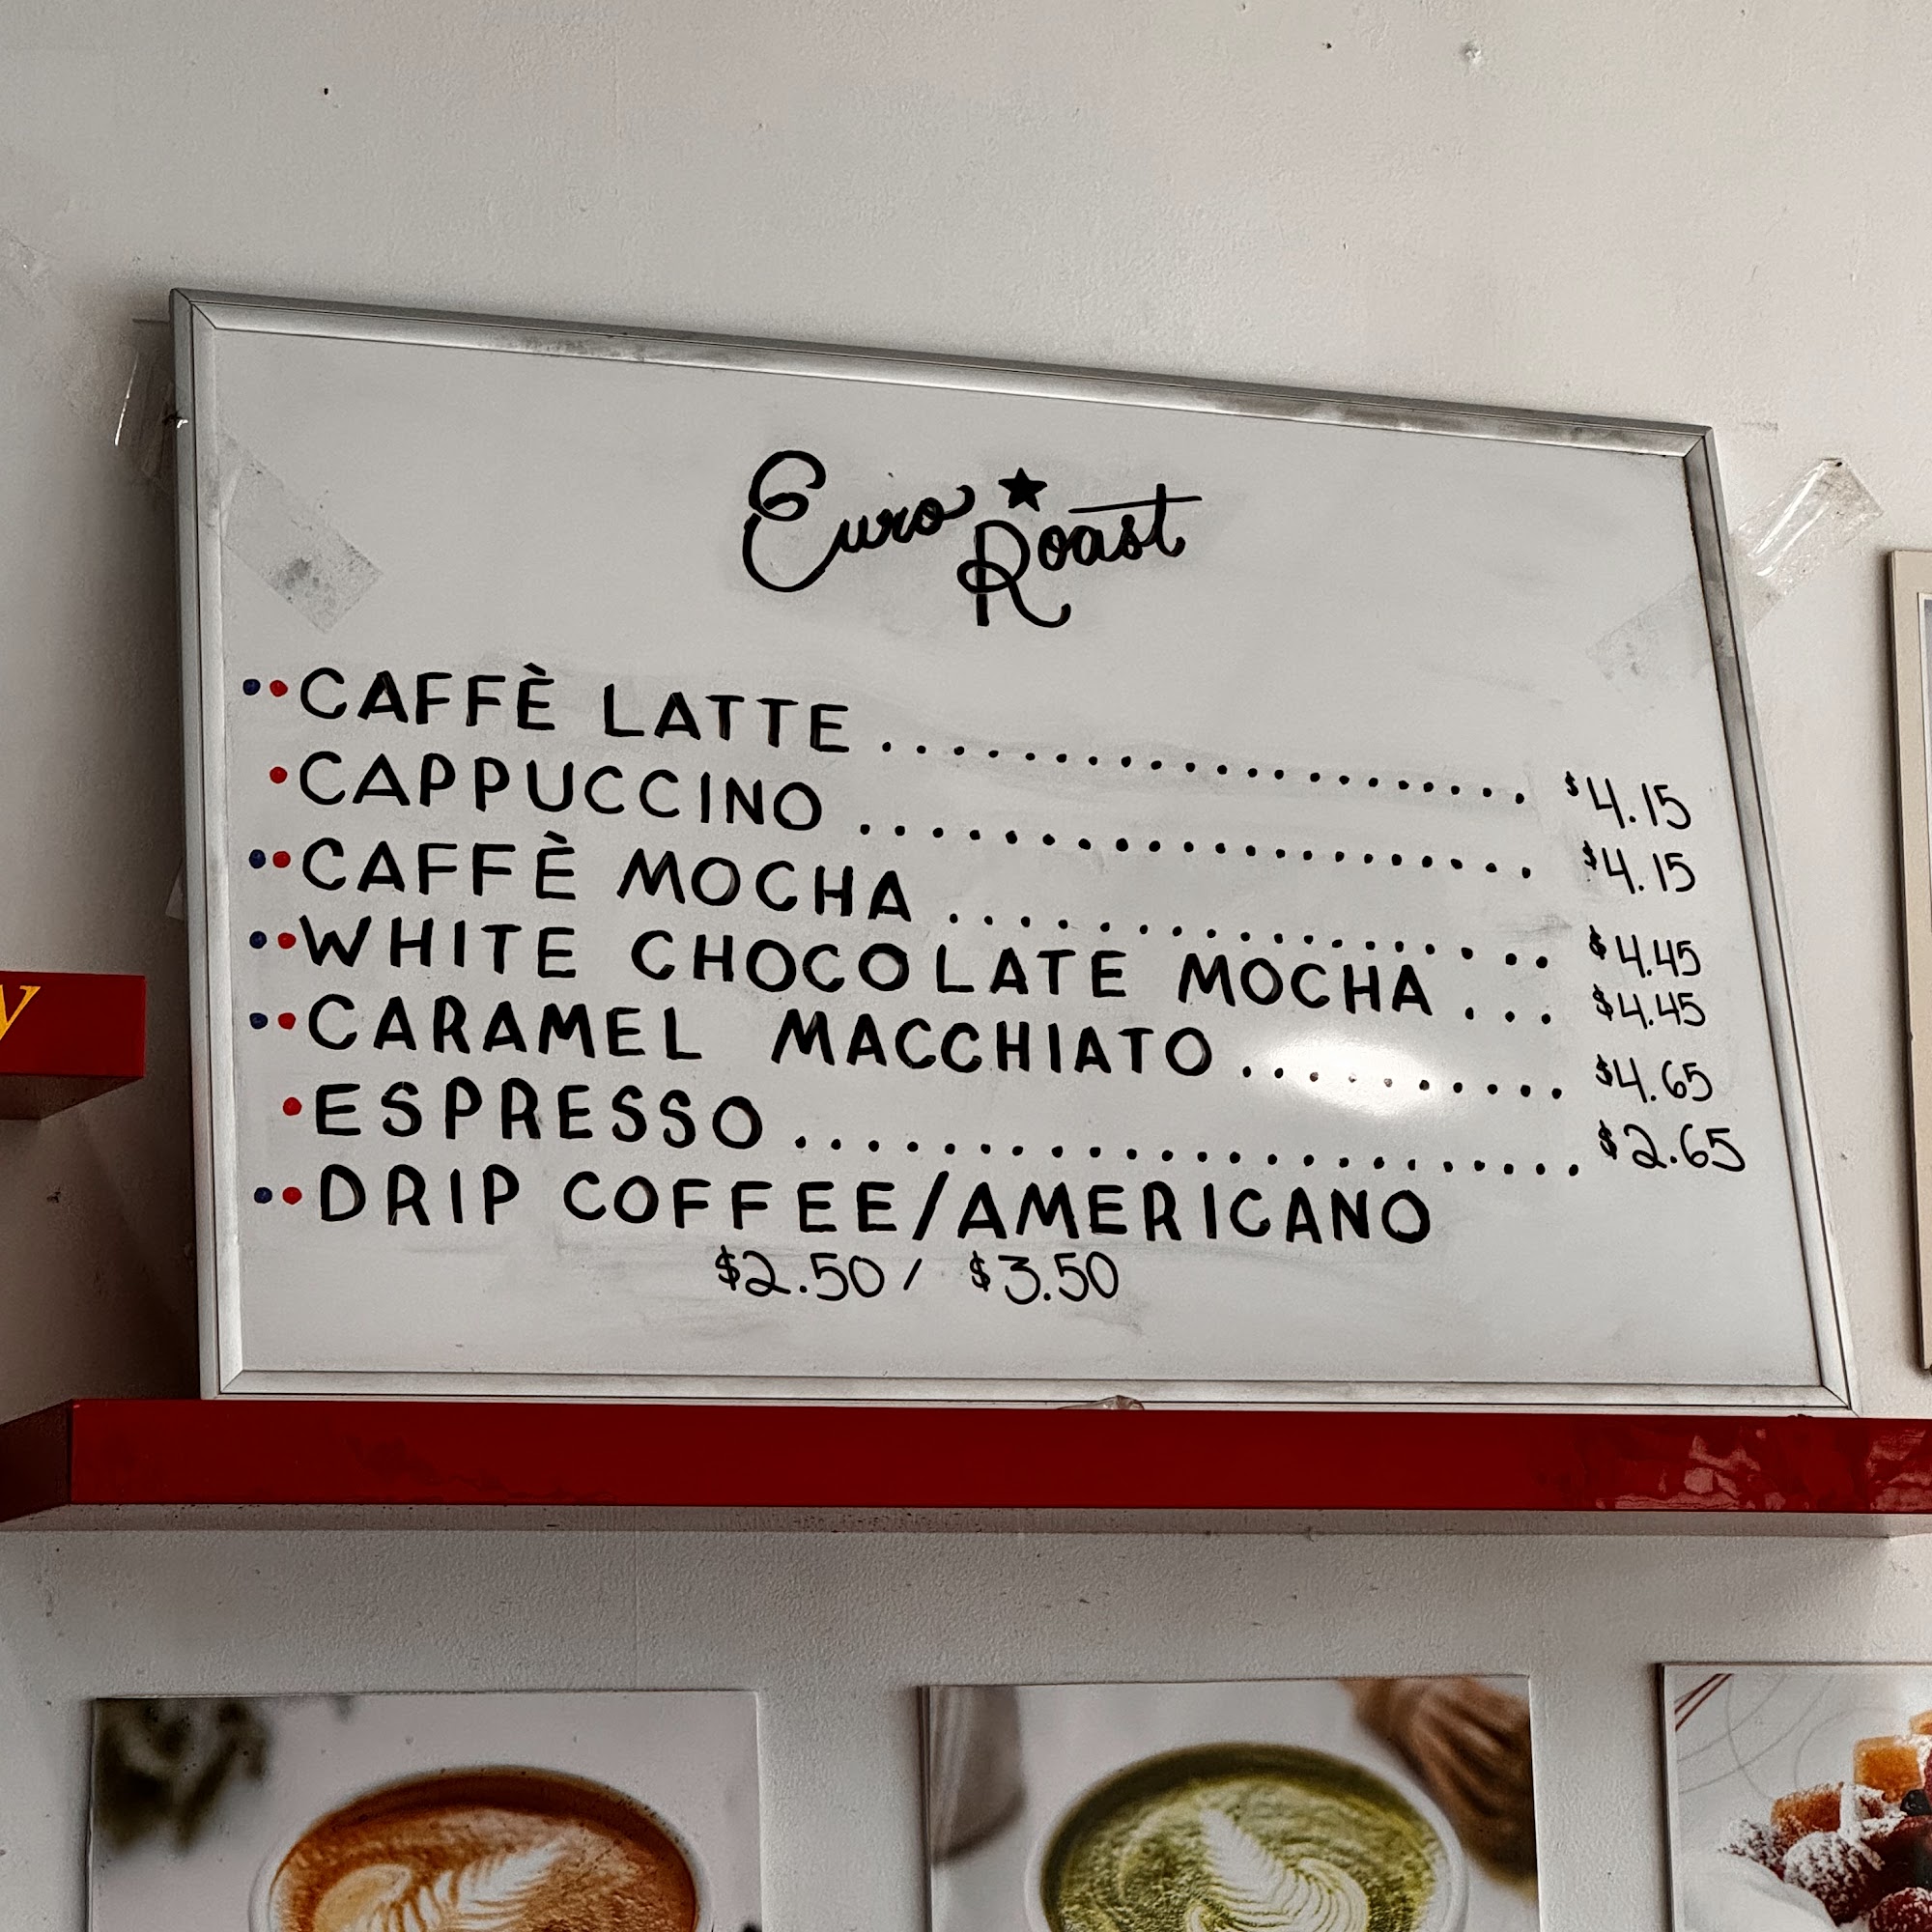 Euro Roast
CAFFÈ LATTE .................. $4.15
CAPPUCCINO ................... $4.15
CAFFÈ MOCHA ................. $4.45
WHITE CHOCOLATE MOCHA ... $4.45
CARAMEL MACCHIATO .......... $4.65
ESPRESSO ...................... $2.65
DRIP COFFEE/AMERICANO
$2.50 / $3.50
y